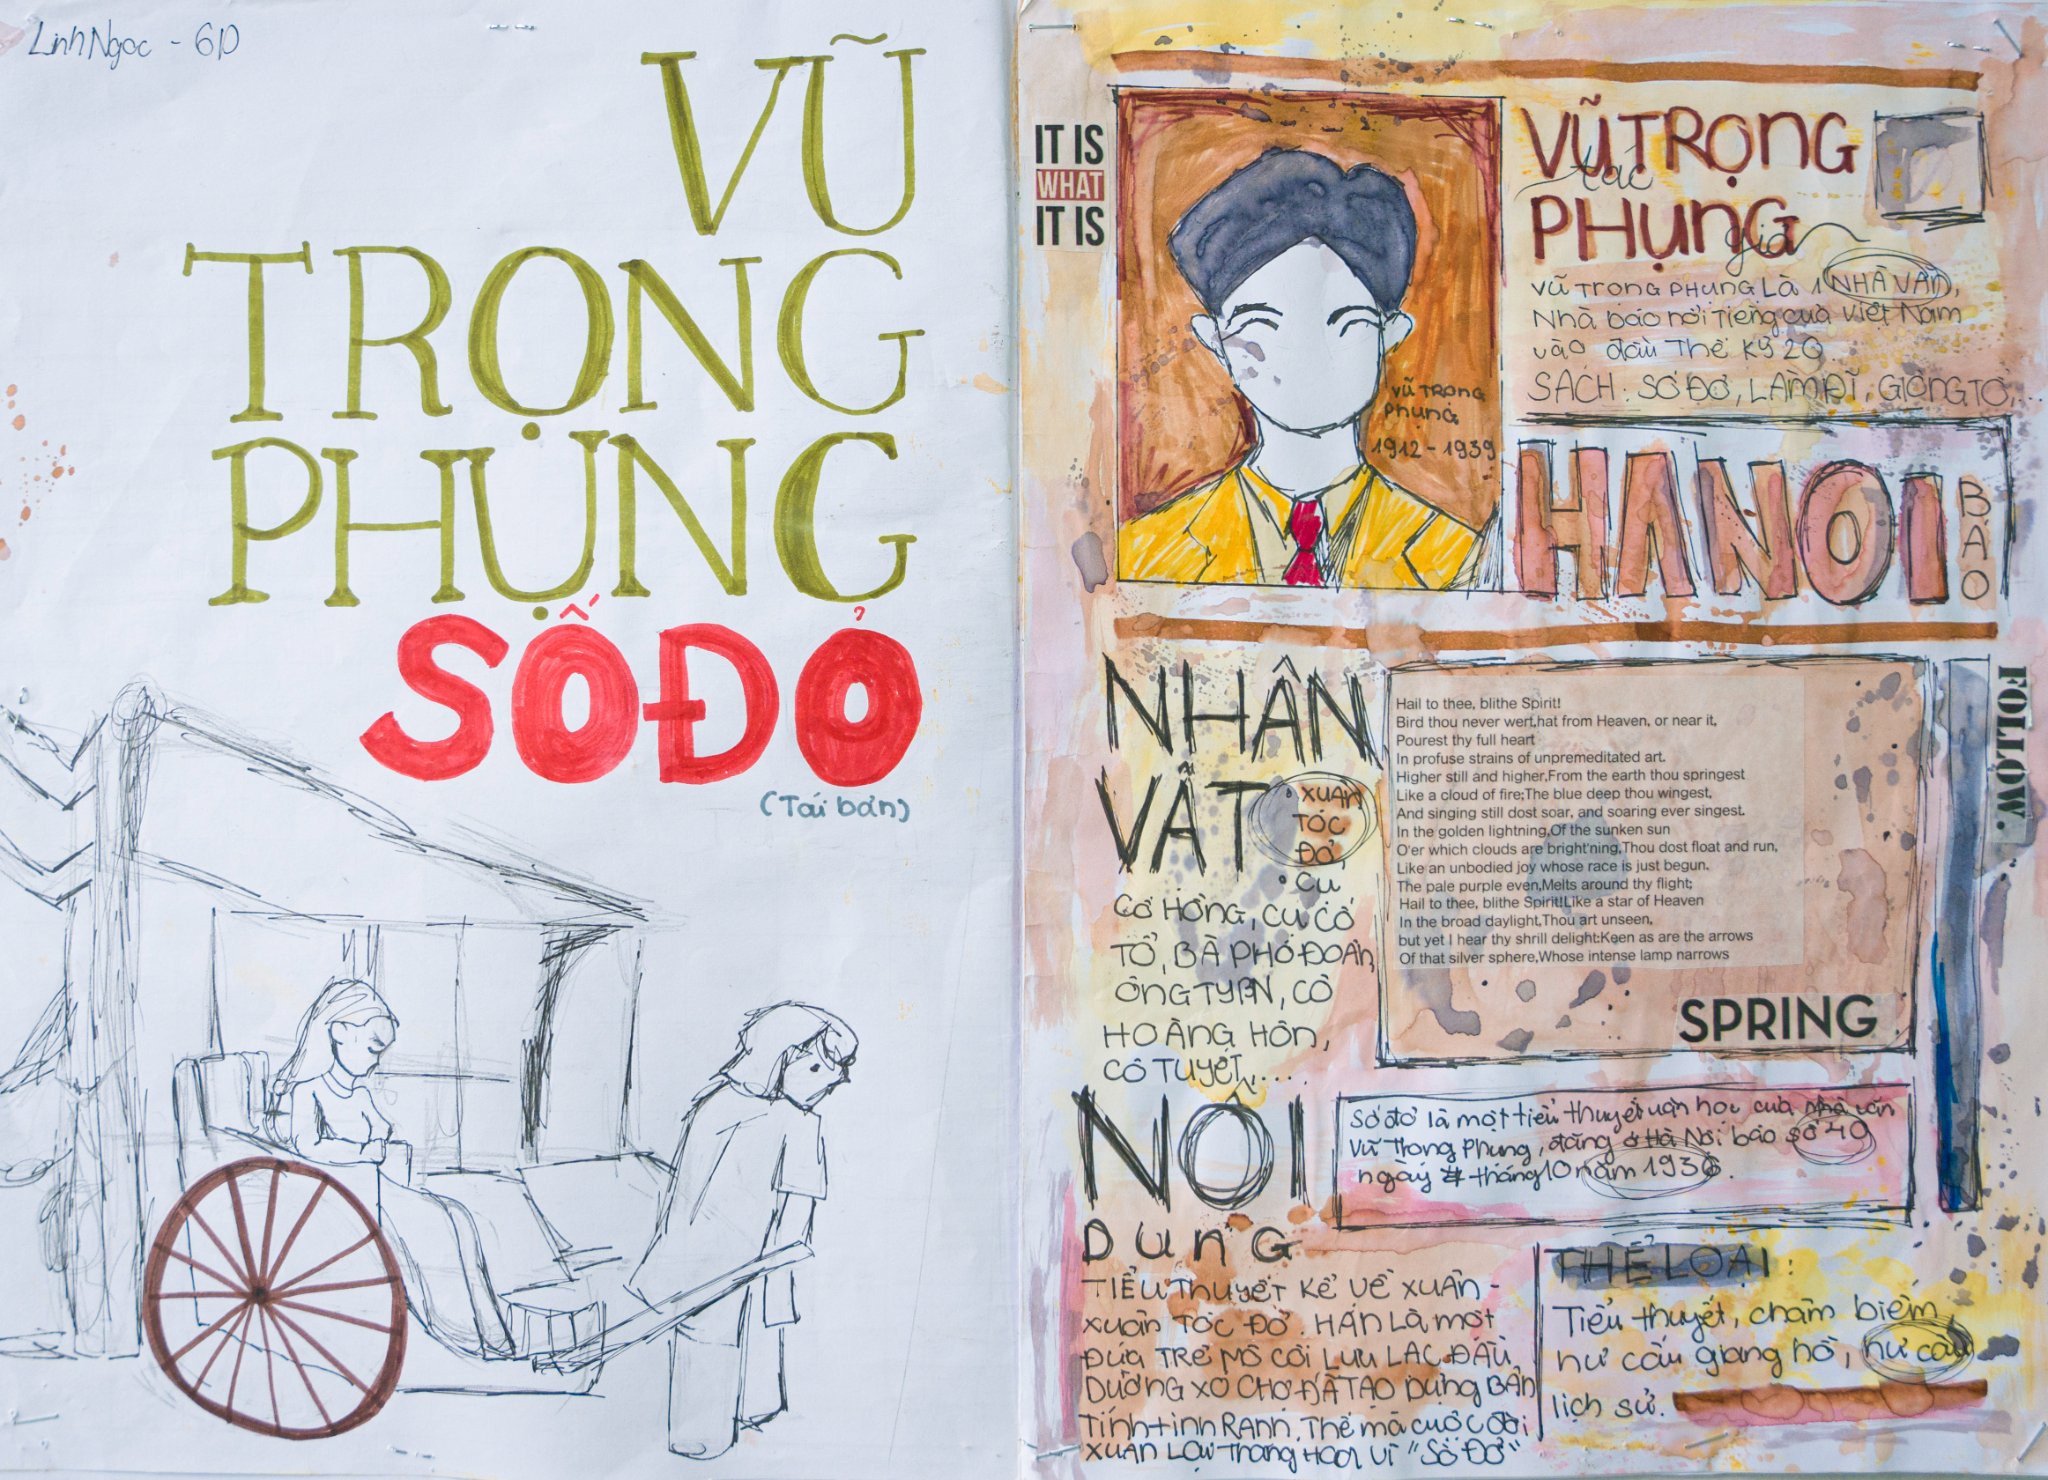 Linh Ngọc - 6D
VŨ
TRỌNG
PHỤNG
SỐ ĐỎ
(Tái bản)
IT IS
WHAT
IT IS
VŨ TRỌNG
PHỤNG
tác
giả
VŨ TRỌNG PHỤNG LÀ 1 NHÀ VĂN,
Nhà báo nổi tiếng của Việt Nam
vào đầu Thế kỷ 20
SÁCH: SỐ ĐỎ, LÀM ĐĨ, GIÔNG TỐ,...
VŨ TRỌNG
PHỤNG
1912 - 1939
HANOI
BÁO
NHÂN
VẬT
• XUÂN
TÓC
ĐỎ,
• CỤ
CỐ HỒNG, CỤ CỐ
TỔ, BÀ PHÓ ĐOAN,
ÔNG TYPN, CÔ
HOÀNG HÔN,
CÔ TUYẾT,....
Hail to thee, blithe Spirit!
Bird thou never wert,hat from Heaven, or near it,
Pourest thy full heart
In profuse strains of unpremeditated art.
Higher still and higher,From the earth thou springest
Like a cloud of fire;The blue deep thou wingest,
And singing still dost soar, and soaring ever singest.
In the golden lightning,Of the sunken sun
O'er which clouds are bright'ning,Thou dost float and run,
Like an unbodied joy whose race is just begun.
The pale purple even,Melts around thy flight;
Hail to thee, blithe Spirit!Like a star of Heaven
In the broad daylight,Thou art unseen,
but yet I hear thy shrill delight:Keen as are the arrows
Of that silver sphere,Whose intense lamp narrows
SPRING
FOLLOW.
NỘI
DUNG
Số đỏ là một tiểu thuyết văn học của nhà văn
Vũ Trọng Phụng, đăng ở Hà Nội báo số 40
ngày 7 tháng 10 năm 1936.
TIỂU THUYẾT KỂ VỀ XUÂN -
XUÂN TÓC ĐỎ. HẮN LÀ MỘT
ĐỨA TRẺ MỒ CÔI LƯU LẠC ĐẦU
ĐƯỜNG XÓ CHỢ ĐÃ TẠO DỰNG BẢN
TÍNH tinh RANH. Thế mà cuộc đời
XUÂN LẠI THĂNG HOA VÌ "SỐ ĐỎ"
THỂ LOẠI:
Tiểu thuyết, châm biếm,
hư cấu giang hồ, hư cấu
lịch sử.